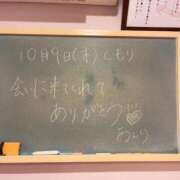 10月9日(木)くもり
会いに来てくれて
ありがとう♡